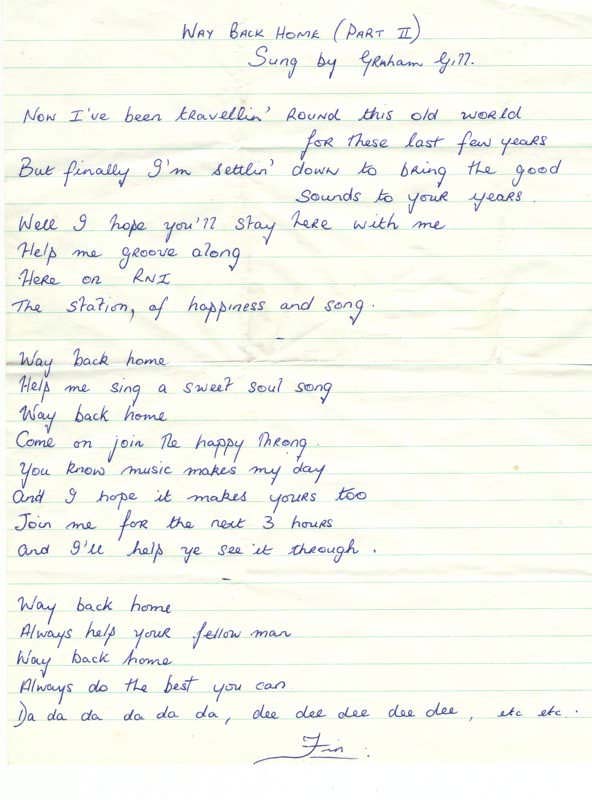 WAY BACK HOME (PART II)
Sung by GRAHAM GILL.
NOW I've been travellin' ROUND this old world
for these last few years
But finally I'm settlin' down to bring the good
sounds to your years.
Well I hope you'll stay here with me
Help me groove along
Here on RNI
The station, of happiness and song.
-
Way back home
Help me sing a sweet soul song
Way back home
Come on join the happy throng.
You know music makes my day
And I hope it makes yours too
Join me for the next 3 hours
And I'll help ye see it through.
-
Way back home
Always help your fellow man
Way back home
Always do the best you can
Da da da da da da, dee dee dee dee dee, etc etc.
Fin.